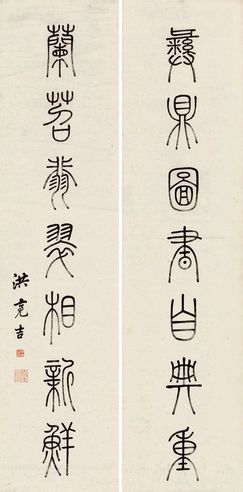 彝鼎圖書自典重
蘭苕翡翠相新鮮
洪亮吉